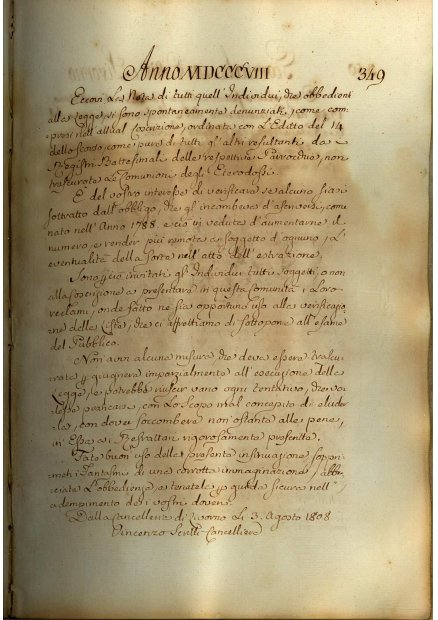 Anno MDCCCVIII
349
Eccovi La Nota di tutti quell' Individui, che obbedienti
alla Legge, si sono spontaneamente denunziati, come com
presi nell' attual Coscrizione, ordinata con L'Editto del 14
dello scorso, come pure di tutti gl' altri resultanti da
Registri Battesimali delle respettive Parrocchie, non
trascurata La Comunione degl' Eterodossi.
È del vostro interesse di verificare se alcuno siasi
sottratto dall' obbligo, che gl' incombeva d'ascriversi, come
nato nell' Anno 1788. e ciò in veduta d'aumentarne il
numero, e render più remota in soggetto d'ognuno, L'
eventualità della Sorte nell' atto dell' estrazione.
Sono invitati gl' Individui tutti soggetti, o non
alla Coscrizione a presentare in questa Comunità i Loro
reclami, onde fatto ne sia opportun uso alla verificazio
ne delle Liste, che ci affrettiamo di sottoporre all' esame
del Pubblico.
Non avvi alcuna misura che deva essere trascu
rata p giugnere imparzialmente all' esecuzione delle
Legge, e potrebbe riuscir vano ogni tentativo, che vo
lesse praticare, con Lo scopo mal concepito di eluder
la, con dover soccombere non ostante alle pene,
in Essa ai Refrattari rigorosamente prescritte.
Fate buon uso della presente insinuazione, soppri
mete i Fantasmi di una corrotta immaginazione, abbra
cciate L'obbedienza, e tenetela p guida sicura nell'
adempimento dei vostri doveri.
Dalla Cancelleria di Livorno Li 3. Agosto 1808
Vincenzo Sevilli Cancelliere